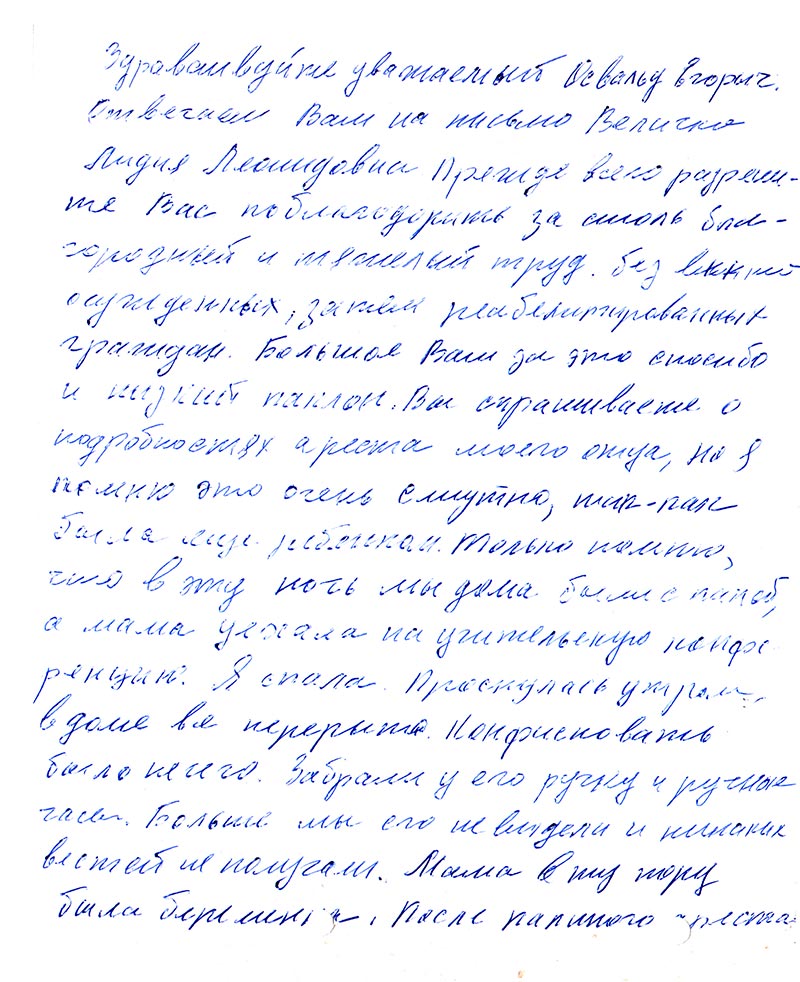 Здравствуйте уважаемый Освальд Егорыч.
Отвечаем Вам на письмо Величко
Лидия Леонидовна Прежде всего разреши-
те Вас поблагодарить за столь бла-
городный и тяжелый труд. без винно
осужденных, затем реабелитированных
граждан. Большое Вам за это спасибо
и низкий паклон. Вы спрашиваете о
подробностях ареста моего отца, но я
помню это очень смутно, т.к.
была еще ребенкам. Только помню,
что в эту ночь мы дома были с папой,
а мама уехала на учительскую конфе-
ренцию. Я спала. Проснулась утрам,
в доме вся перерыто. Конфисковать
было нечего. Забрали у его ручку и ручные
часы. Больше мы его не видели и никаких
вестей не получали. Мама в ту пору
была беременна. После папиного ареста